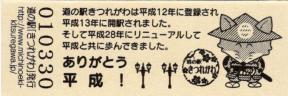 道の駅きつれがわ発行
http://www.michinoeki-kitsuregawa.jp/
010330
道の駅きつれがわは平成12年に登録され
平成13年に開駅されました。
そして平成28年にリニューアルして
平成と共に歩んできました。
ありがとう
平成!
道の駅
きつれがわ